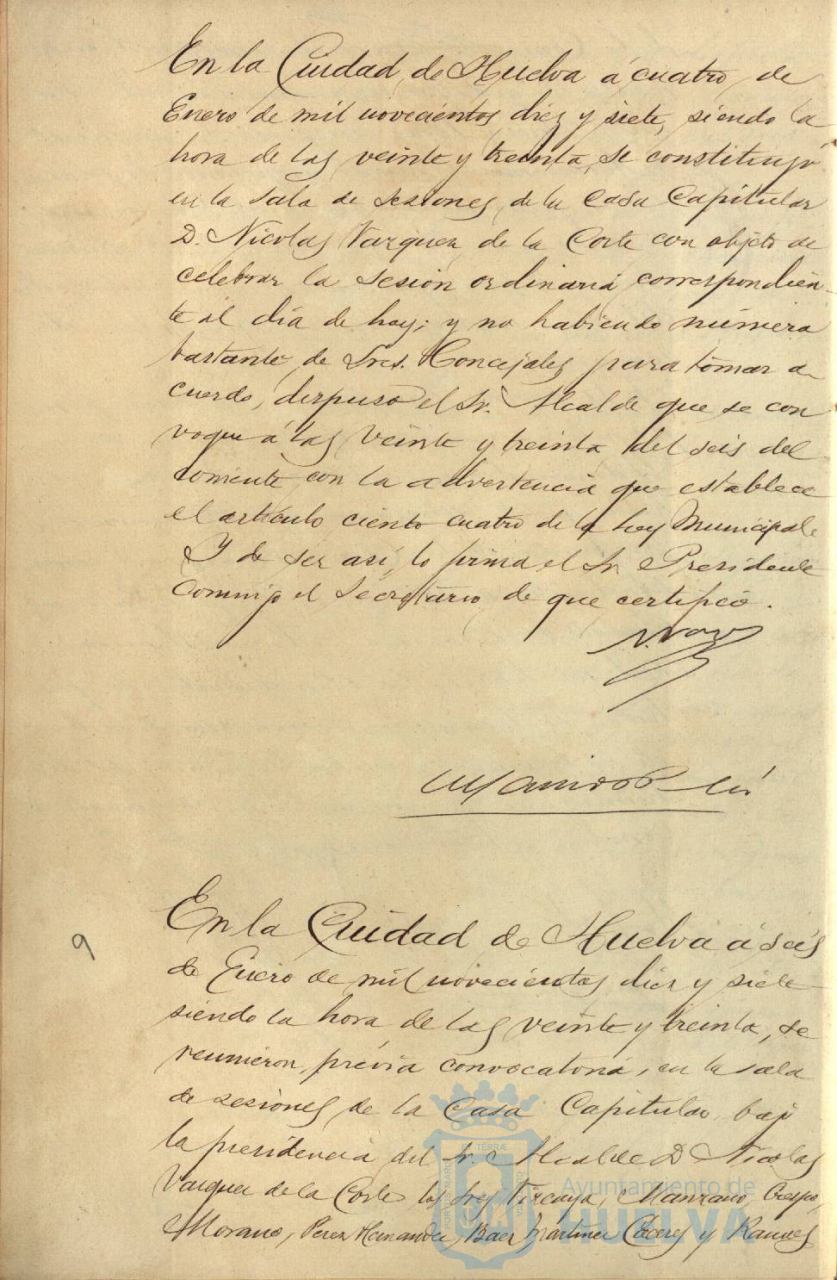 En la Ciudad de Huelva á cuatro de
Enero de mil novecientos diez y siete, siendo la
hora de las veinte y treinta, se constituyó
en la sala de sesiones de la Casa Capitular
D. Nicolas Vazquez de la Corte con objeto de
celebrar la sesión ordinaria correspondien-
te al día de hoy; y no habiendo número
bastante de Sres. Concejales para tomar a-
cuerdo, dispuso el Sr. Alcalde que se con
voque á las veinte y treinta del seis del
corriente con la advertencia que establece
el articulo ciento cuatro de la Ley Municipal.
Y de ser así, lo firma el Sr. Presidente
conmigo el Secretario de que certifico.
N. Vazq
En la Ciudad de Huelva á seis
9
de Enero de mil novecientos diez y siete
siendo la hora de las veinte y treinta, se
reunieron, prévia convocatoria, en la sala
de sesiones de la Casa Capitular bajo
la presidencia del Sr. Alcalde D. Nicolas
Vazquez de la Corte los Sres Vizcaya, Manzano, Crespo,
Morano, Perez Hernandez, Baez, Martinez Caceres y Ramos
Ayuntamiento de
HUELVA